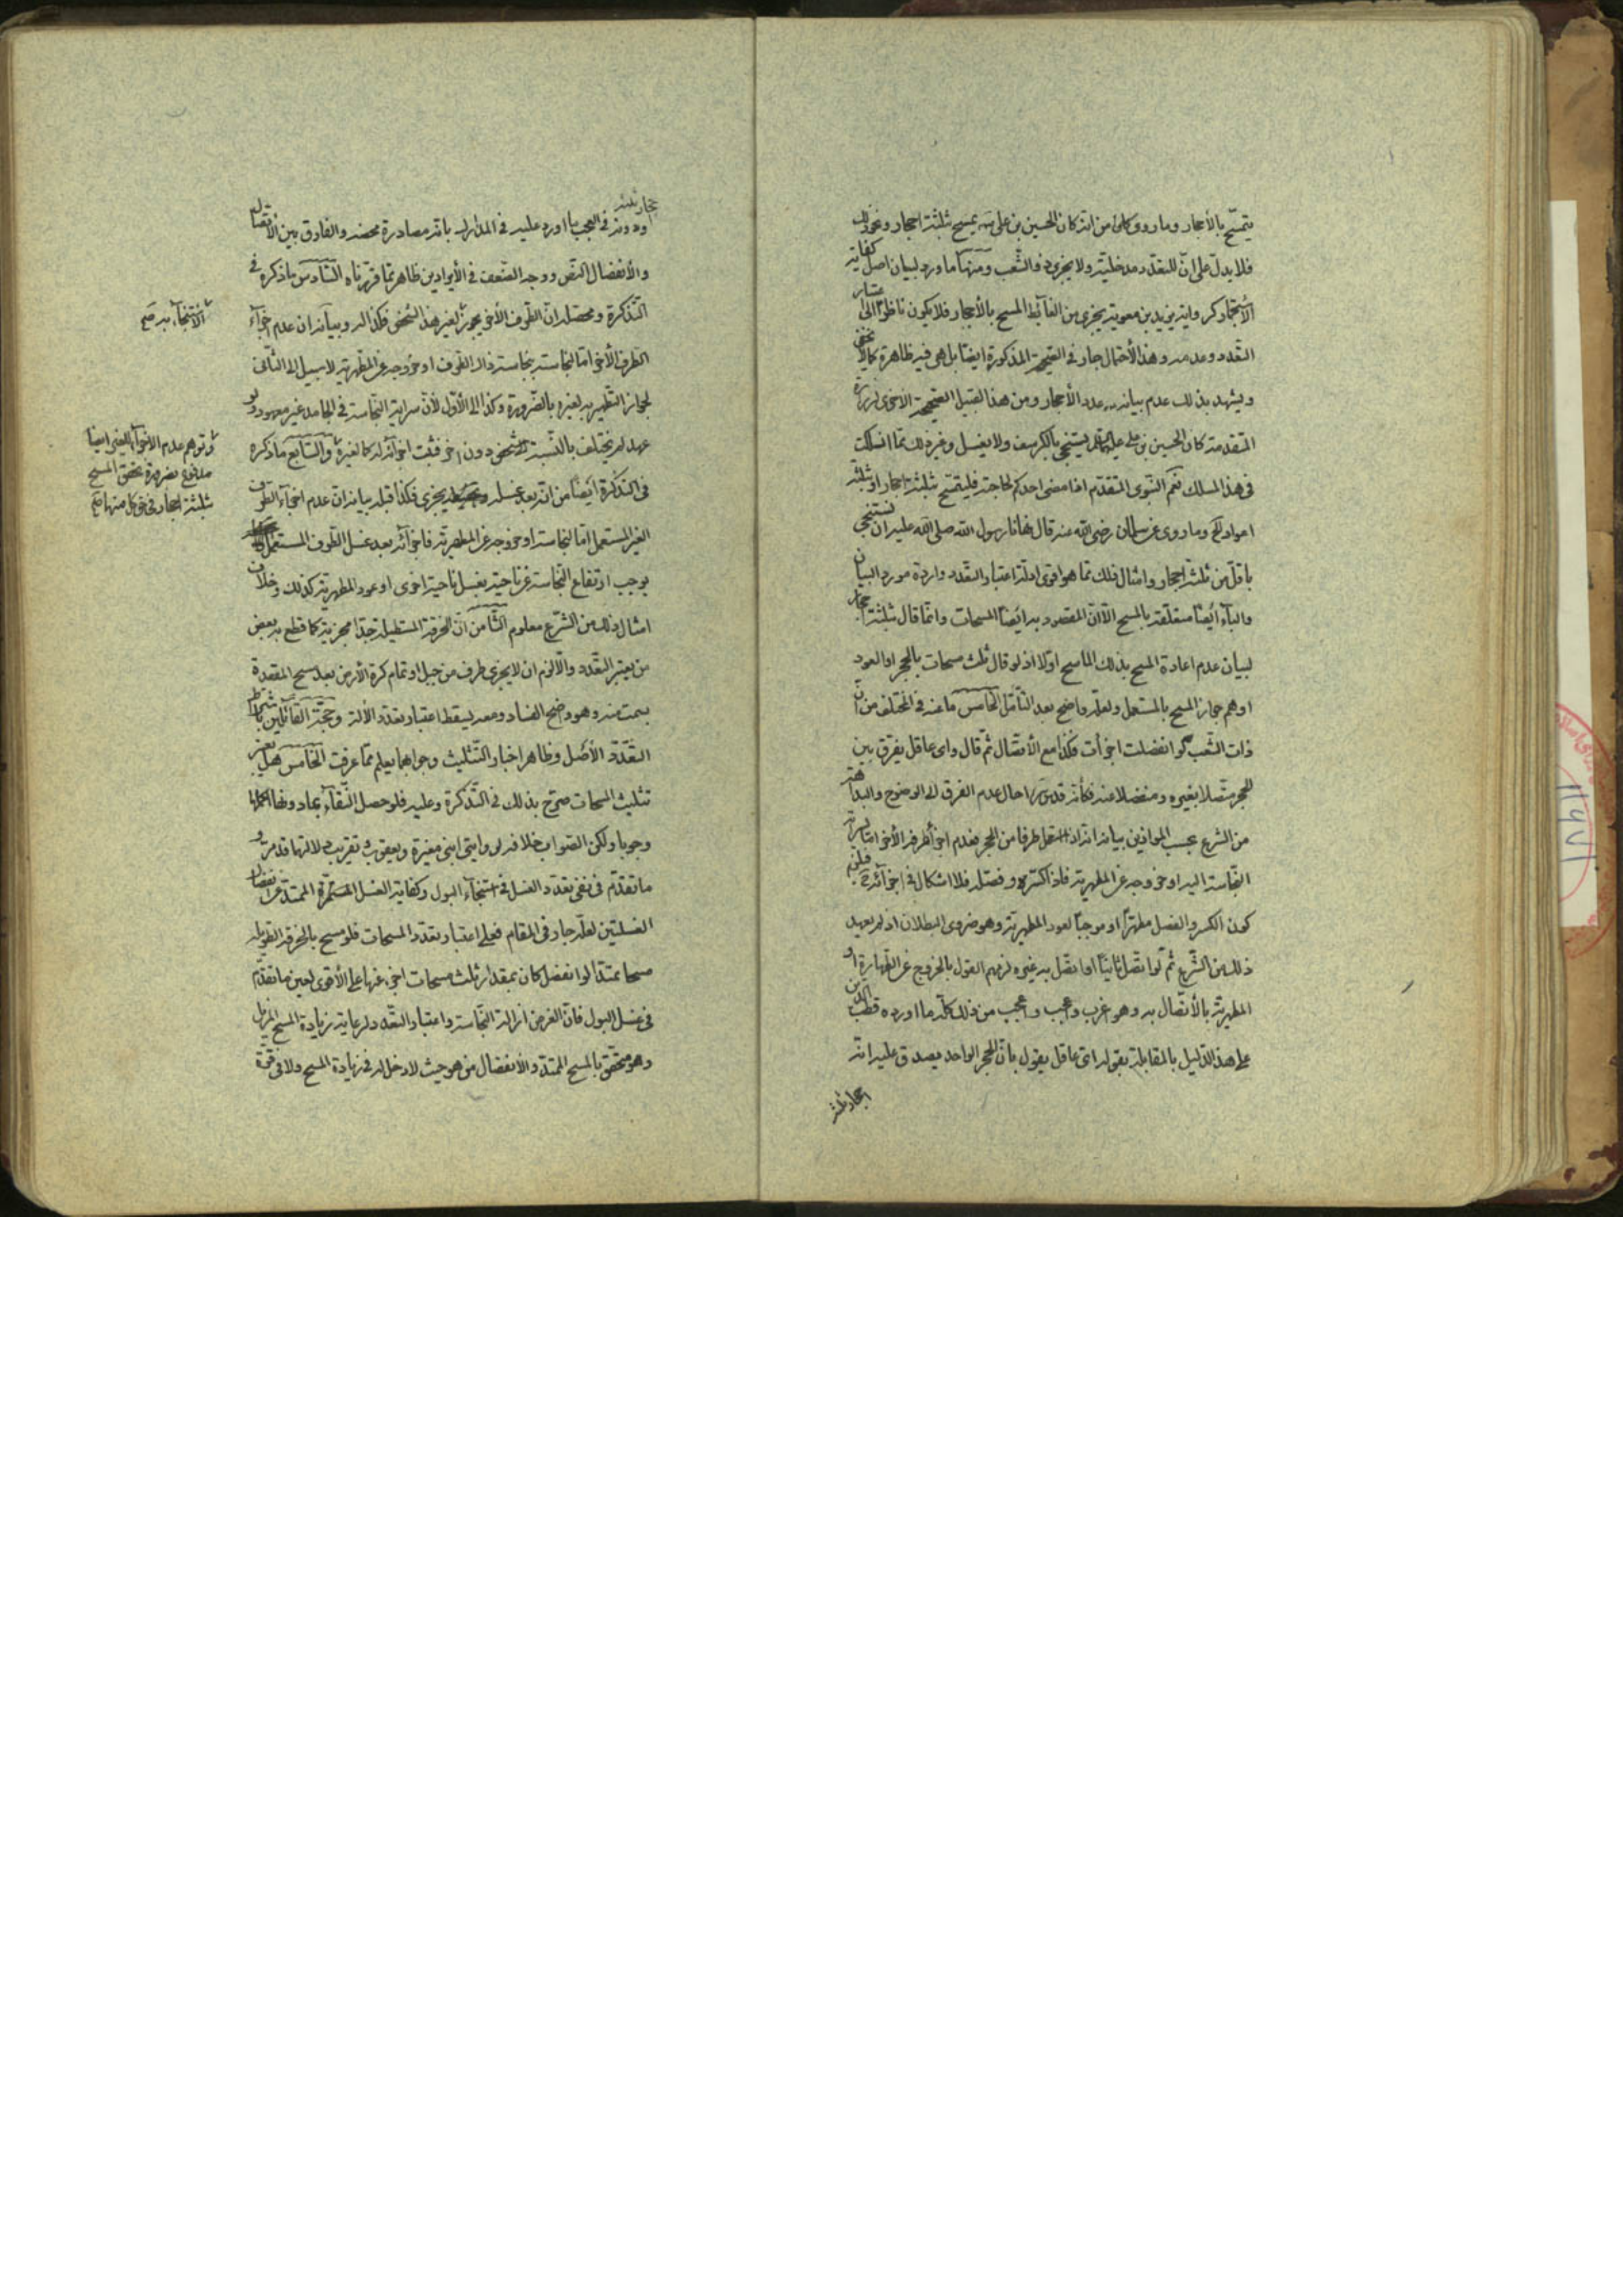 يتمسح بالأحجار وما روى كان من انه كان الحسين بن على يمسح بثلثة احجار ونحو ذلك
فلا يدل على ان للتعدد مدخلية ولا يجزى ذو الشعب ومنها ما ورد لبيان اصل كفاية
الأستجمار كرواية بريد بن معوية يجزى من الغائط المسح بالأحجار فلا يكون ناظرا الى اعتبار
التعدد وعدمه وهذا الأحتمال جار فى الصحيحة المذكورة ايضا بل هى فيه ظاهرة كما لا يخفى
ويشهد بذلك عدم بيانه عدد الأحجار ومن هذا القبيل الصحيحة الاخرى لزرارة
المتقدمة كان الحسين بن على يستنجى بالكرسف ولا يغسل وغير ذلك مما انسلك
فى هذا المسلك نعم النبوى المتقدم اذا مضى احدكم لحاجته فليتمسح بثلثة احجار او بثلثة
اعواد الخ وما روى عن سلمان رضى الله عنه قال نهانا رسول الله صلى الله عليه ان نستنجى
باقل من ثلثة احجار وامثال ذلك مما هو اقوى ادلة اعتبار التعدد واردة مورد البيان
والباء ايضا متعلقة بالمسح الا ان المقصود به ايضا المسحات وانما قال بثلثة احجار
لبيان عدم اعادة المسح بذلك الماسح اولا اذ لو قال ثلث مسحات بالحجر او العود
اوهم جواز المسح بالمستعمل ولعله واضح بعد التأمل الخامس ما عنه فى المختلف من ان
ذات الشعب لو انفصلت اجزأت فكذا مع الأتصال ثم قال واى عاقل يفرق بين
الحجر متصلا بغيره ومنفصلا عنه فكأنه قدس سره احال عدم الفرق الى الوضوح والبداهة
من الشرع بحسب الموازين بيانه انه اذا استعمل طرفا من الحجر فعدم اجزأ طرفه الأخر اما لسراية
النجاسة اليه او خروجه عن المطهرية فاذا كسره وفصله فلا اشكال فى اجزائه ح فيلزم
كون الكسر والفصل مطهرا او موجبا لعود المطهرية وهو ضرورى البطلان اذ لم يعهد
ذلك من الشرع ثم لو اتصل ثانيا او اتصل به غيره لزمهم القول بالخروج عن الطهارة او
المطهرية بالأتصال به وهو غريب وعجيب واعجب من ذلك كله ما اورده قطب الدين
على هذا الدليل بالمقابلة بقوله اى عاقل يقول بان الحجر الواحد يصدق عليه انه
احجار ثلثة
احجار ثلثة
ودونه فى العجب ما اورد عليه فى المدارك بانه مصادرة محضه والفارق بين الأتصال
والأنفصال النص ووجه الضعف فى الأيرادين ظاهر مما قررناه السادس ما ذكره فى
التذكرة ومحصله ان الطرف الأخر يجوز لغير هذا الشخص فكذا له وبيانه ان عدم اجزاء
الطرف الأخر اما لنجاسته بنجاسة ذلك الطرف او خروجه عن المطهرية لا سبيل الى الثانى
لجواز التطهير به لغيره بالضرورة وكذا الى الأول لأن سراية النجاسة فى الجامد غير معهود ولو
عهد لم يختلف بالنسبة الى شخص دون اخر فثبت اجزائه له كما لغيره والسابع ما ذكره
فى التذكرة ايضا من انه بعد غسله يجزى فكذا قبله بيانه ان عدم اجزاء الطرف
الغير المستعمل اما لنجاسته او خروجه عن المطهرية فاجزائه بعد غسل الطرف المستعمل
يوجب ارتفاع النجاسة عن ناحية بغسل ناحية اخرى او عود المطهرية كذلك وخلاف
امثال ذلك من الشرع معلوم الثامن ان الخرقة المستطيلة جدا مجزية كما قطع به بعض
من يعتبر التعدد والا لزم ان لا يجزى طرف من جبل او تمام كرة الأرض بعد مسح المقعدة
بسمت منه وهو واضح الفساد ومعه يسقط اعتبار تعدد الألة وحجة القائلين باشتراط
التعدد الأصل وظاهر اخبار التثليث وجوابهما يعلم مما عرفت الخامس هل يعتبر
تثليث المسحات صرح بذلك فى التذكرة وعليه فلو حصل النقاء بما دونها اكملها
وجوبا ولكن الصواب خلافه لروايتى ابنى مغيرة ويعقوب وتقريب دلالتها قد مر و
ما تقدم فى نفى تعدد الغسل فى استنجاء البول وكفاية الغسل المستمرة الممتدة عن انفصال
الغسلتين لعله جار فى المقام فعلى اعتبار تعدد المسحات فلو مسح بالخرقة الطويلة
مسحا ممتدا لو انفصل كان بمقدار ثلث مسحات اجزء عنها على الأقوى لعين ما تقدم
فى غسل البول فان الغرض ازالة النجاسة واعتبار التعدد لرعاية زيادة المسح المزيل
وهو متحقق بالمسح الممتد والأنفصال من هو حيث لا دخل له فى زيادة المسح ولا فى قوة
الأستنجاء به صح
وتوهم عدم الاجزاء للغير ايضا
مدفوع بضرورة تحقق المسح
بثلثة احجار فى حق كل منهما صح